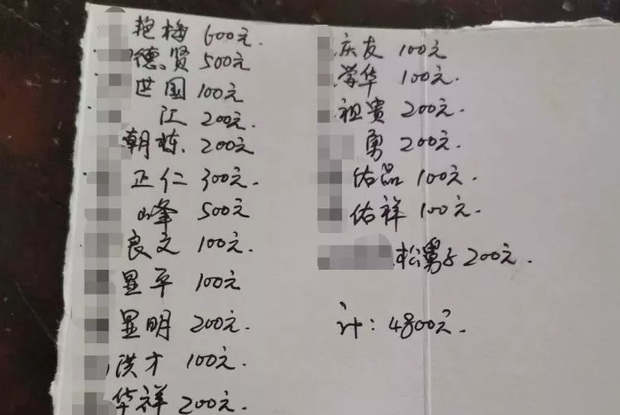 艳梅 600元.
德贤 500元
世国 100元
江 200元.
朝栋 200元
正仁 300元.
峰 500元
良文 100元.
显平 100元
显明 200元.
洪才 100元.
华祥 200元.
庆友 100元
荣华 100元.
祖贵 200元.
勇 200元.
佑品 100元.
佑祥 100元.
松舅子 200元.
计: 4800元.